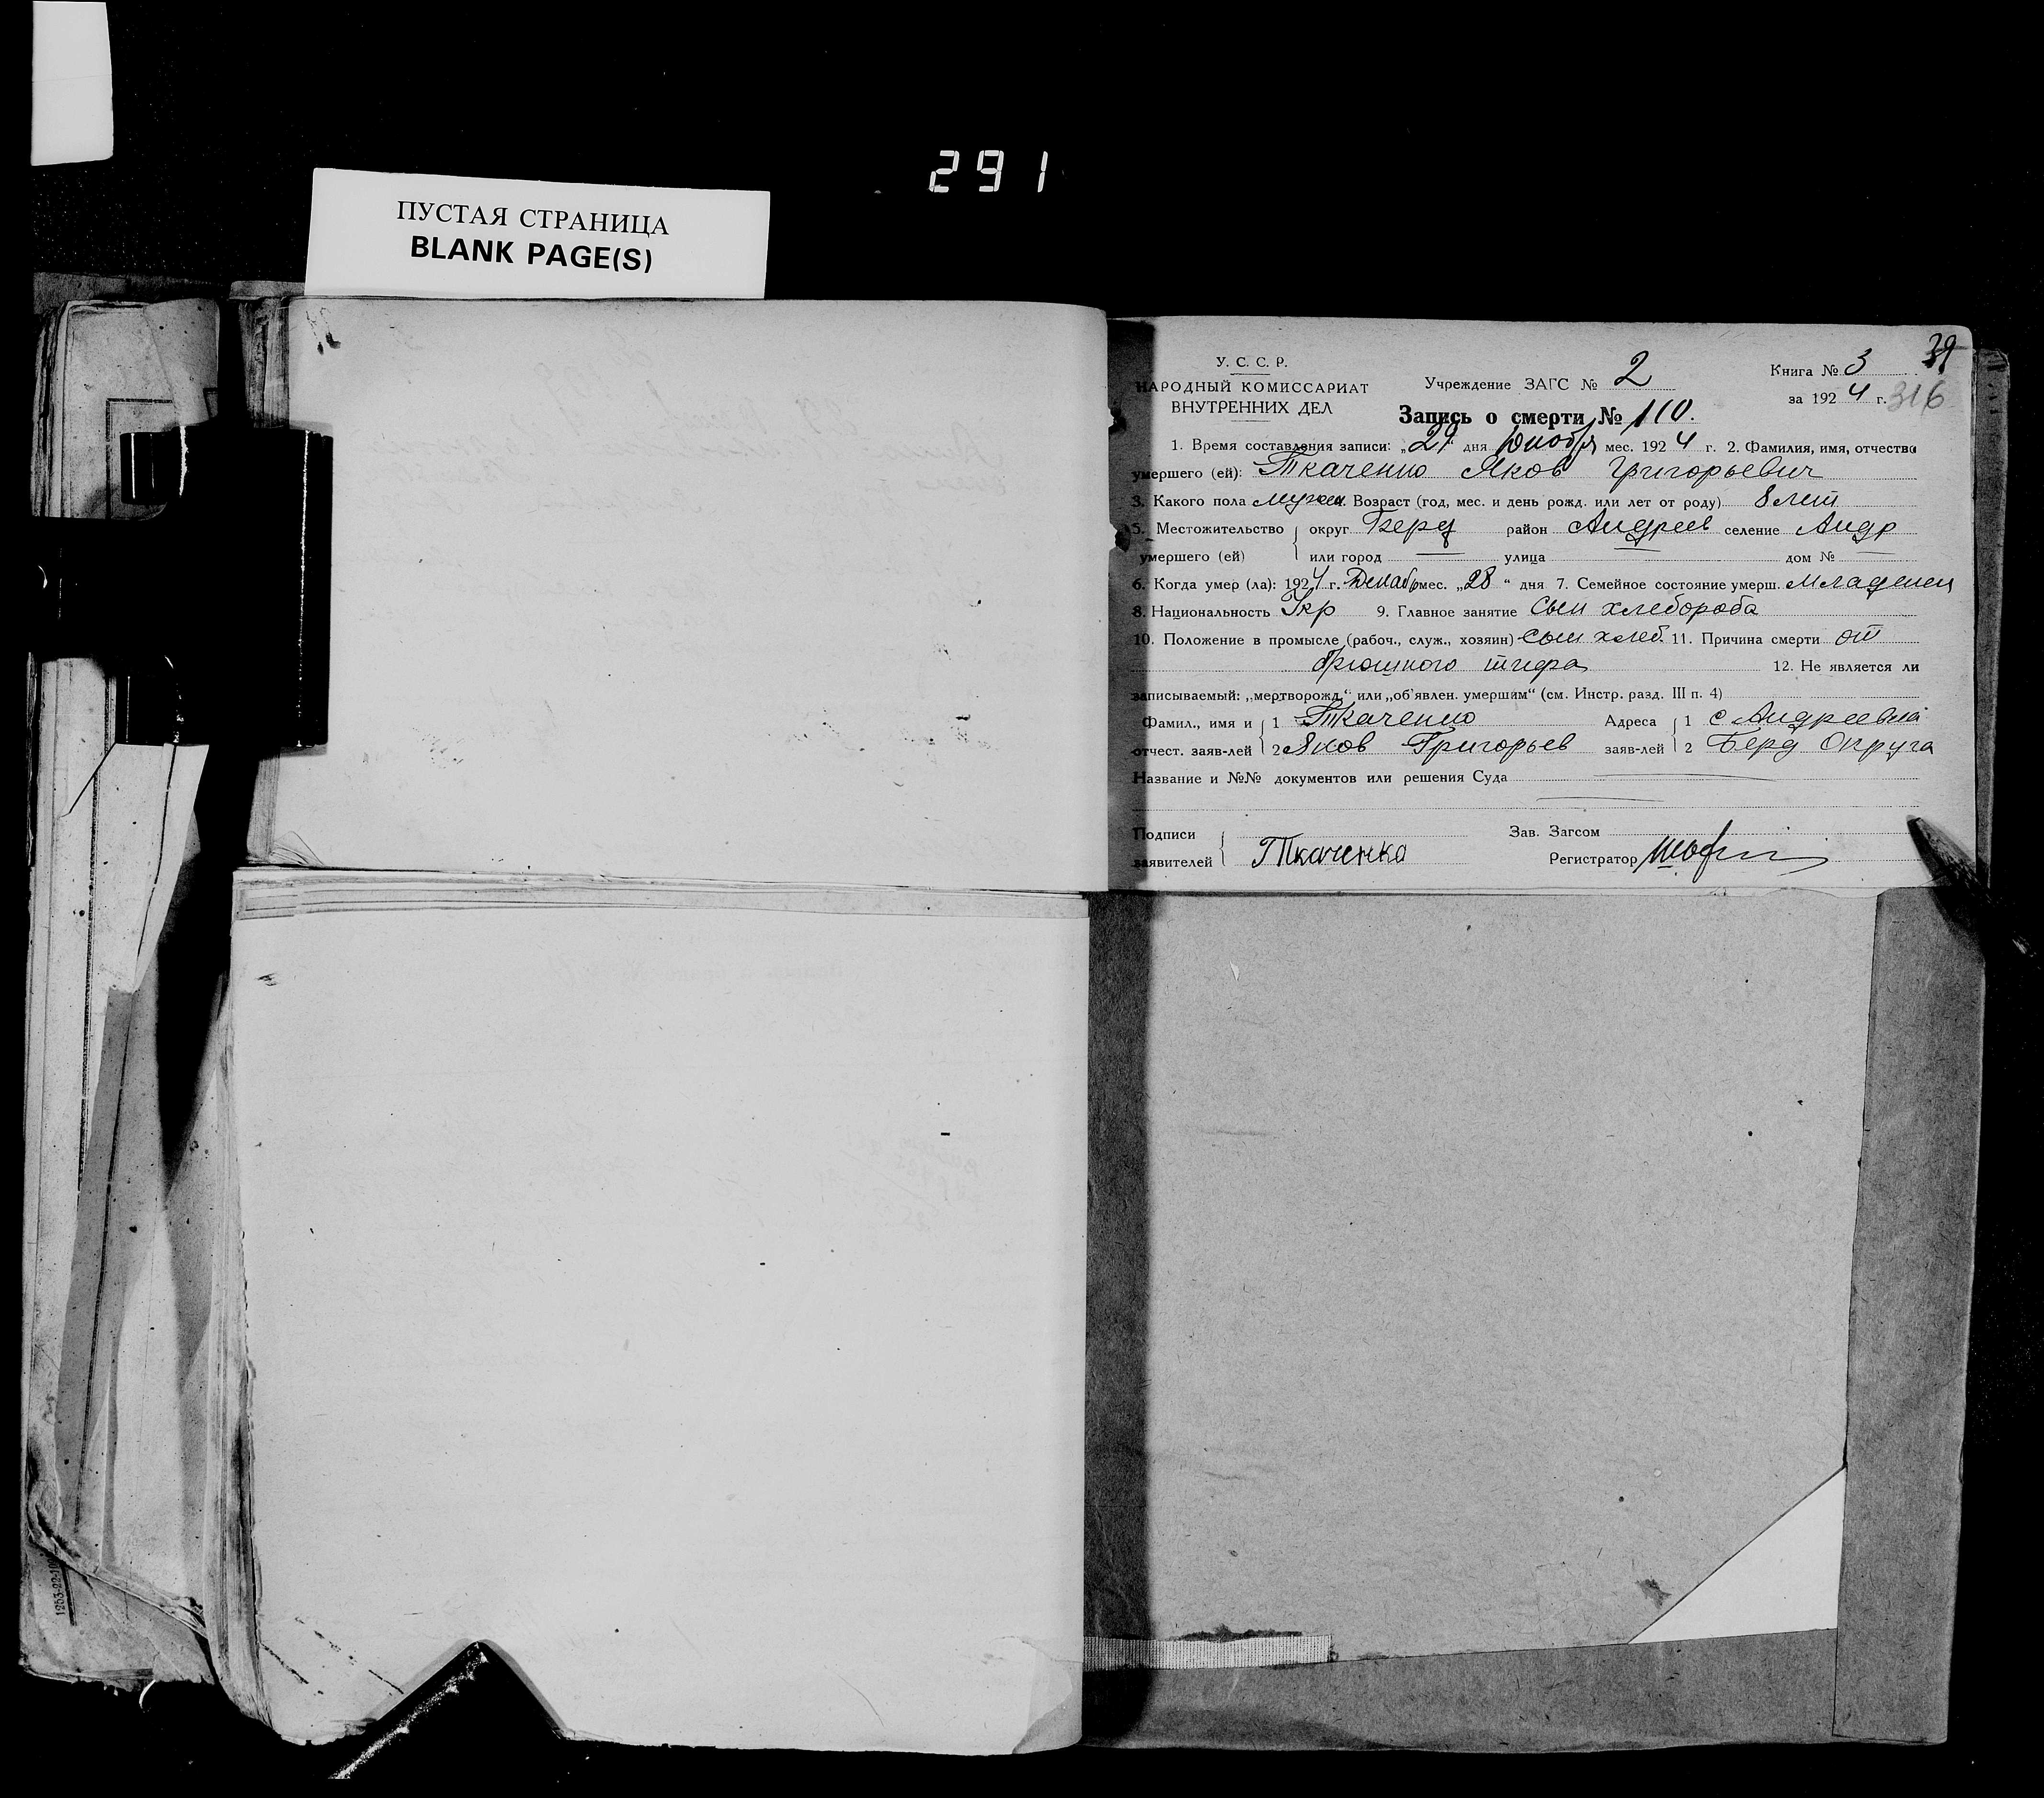 291
ПУСТАЯ СТРАНИЦА
BLANK PAGE(S)
39
У. С. С. Р.
НАРОДНЫЙ КОМИССАРИАТ
ВНУТРЕННИХ ДЕЛ
Учреждение ЗАГС № 2
Книга № 3
за 1924 г. 316
Запись о смерти № 110.
1. Время составления записи: „29" дня мес. 1924 г. 2. Фамилия, имя, отчество
умершего (ей): Ткаченко Яков Григорьевич
3. Какого пола мужск. Возраст (год, мес. и день рожд. или лет от роду) 8 лет
5. Местожительство округ Берд район Андреев селение Андр
умершего (ей) или город — улица — дом № —
6. Когда умер (ла): 1924 г. Декабр мес. „28" дня 7. Семейное состояние умерш. младенец
8. Национальность Укр 9. Главное занятие сын хлебороба
10. Положение в промысле (рабоч., служ., хозяин) сын хлеб. 11. Причина смерти от
брюшного тифа 12. Не является ли
записываемый: „мертворожд." или „об'явлен. умершим" (см. Инстр. разд. III п. 4)
Фамил., имя и 1 Ткаченко Адреса 1 с Андреевка
отчест. заяв-лей 2 Яков Григорьев заяв-лей 2 Берд Округа
Название и №№ документов или решения Суда
Подписи Зав. Загсом
заявителей Г Ткаченка Регистратор
1253-22-10